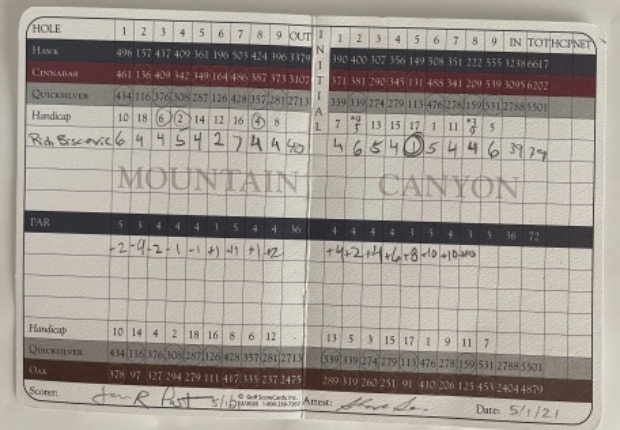 HOLE 1 2 3 4 5 6 7 8 9 OUT INITIAL 1 2 3 4 5 6 7 8 9 IN TOT HCP NET
HAWK 496 157 437 409 361 196 503 424 396 3379 390 400 307 356 149 508 351 222 555 3238 6617
CINNABAR 461 136 409 342 349 164 486 387 373 3107 371 381 290 345 131 488 341 209 539 3095 6202
QUICKSILVER 434 116 376 308 287 126 428 357 281 2713 339 339 274 279 113 476 278 159 531 2788 5501
Handicap 10 18 6 2 14 12 16 4 8 7 13 15 17 1 11 5
6 4 4 5 4 2 7 4 4 40 4 6 5 4 1 5 4 4 6 39 79
MOUNTAIN CANYON
PAR 5 3 4 4 4 3 5 4 4 36 4 4 4 4 3 5 4 3 5 36 72
-2 -4 -2 -1 -1 +1 +1 +1 +2 +4 +2 +4 +6 +8 +10 +10
Handicap 10 14 4 2 18 16 8 6 12 13 5 3 15 17 1 9 11 7
QUICKSILVER 434 116 376 308 287 126 428 357 281 2713 339 339 274 279 113 476 278 159 531 2788 5501
OAK 378 97 327 294 279 111 417 335 237 2475 289 319 260 251 91 410 206 125 453 2404 4879
Scorer: Attest: Date: 5/1/21